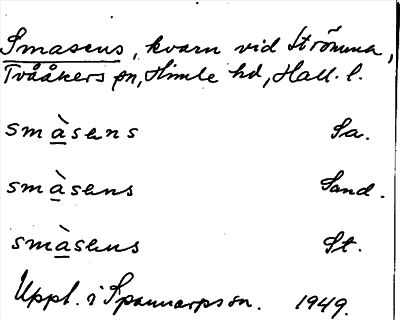 Smasens, kvarn vid Strömma,
Tvååkers sn, Himle hd, Hall. l.
smàsens Sa.
smàsens Sand.
smàsens St.
Uppl. i Spannarps sn. 1949.